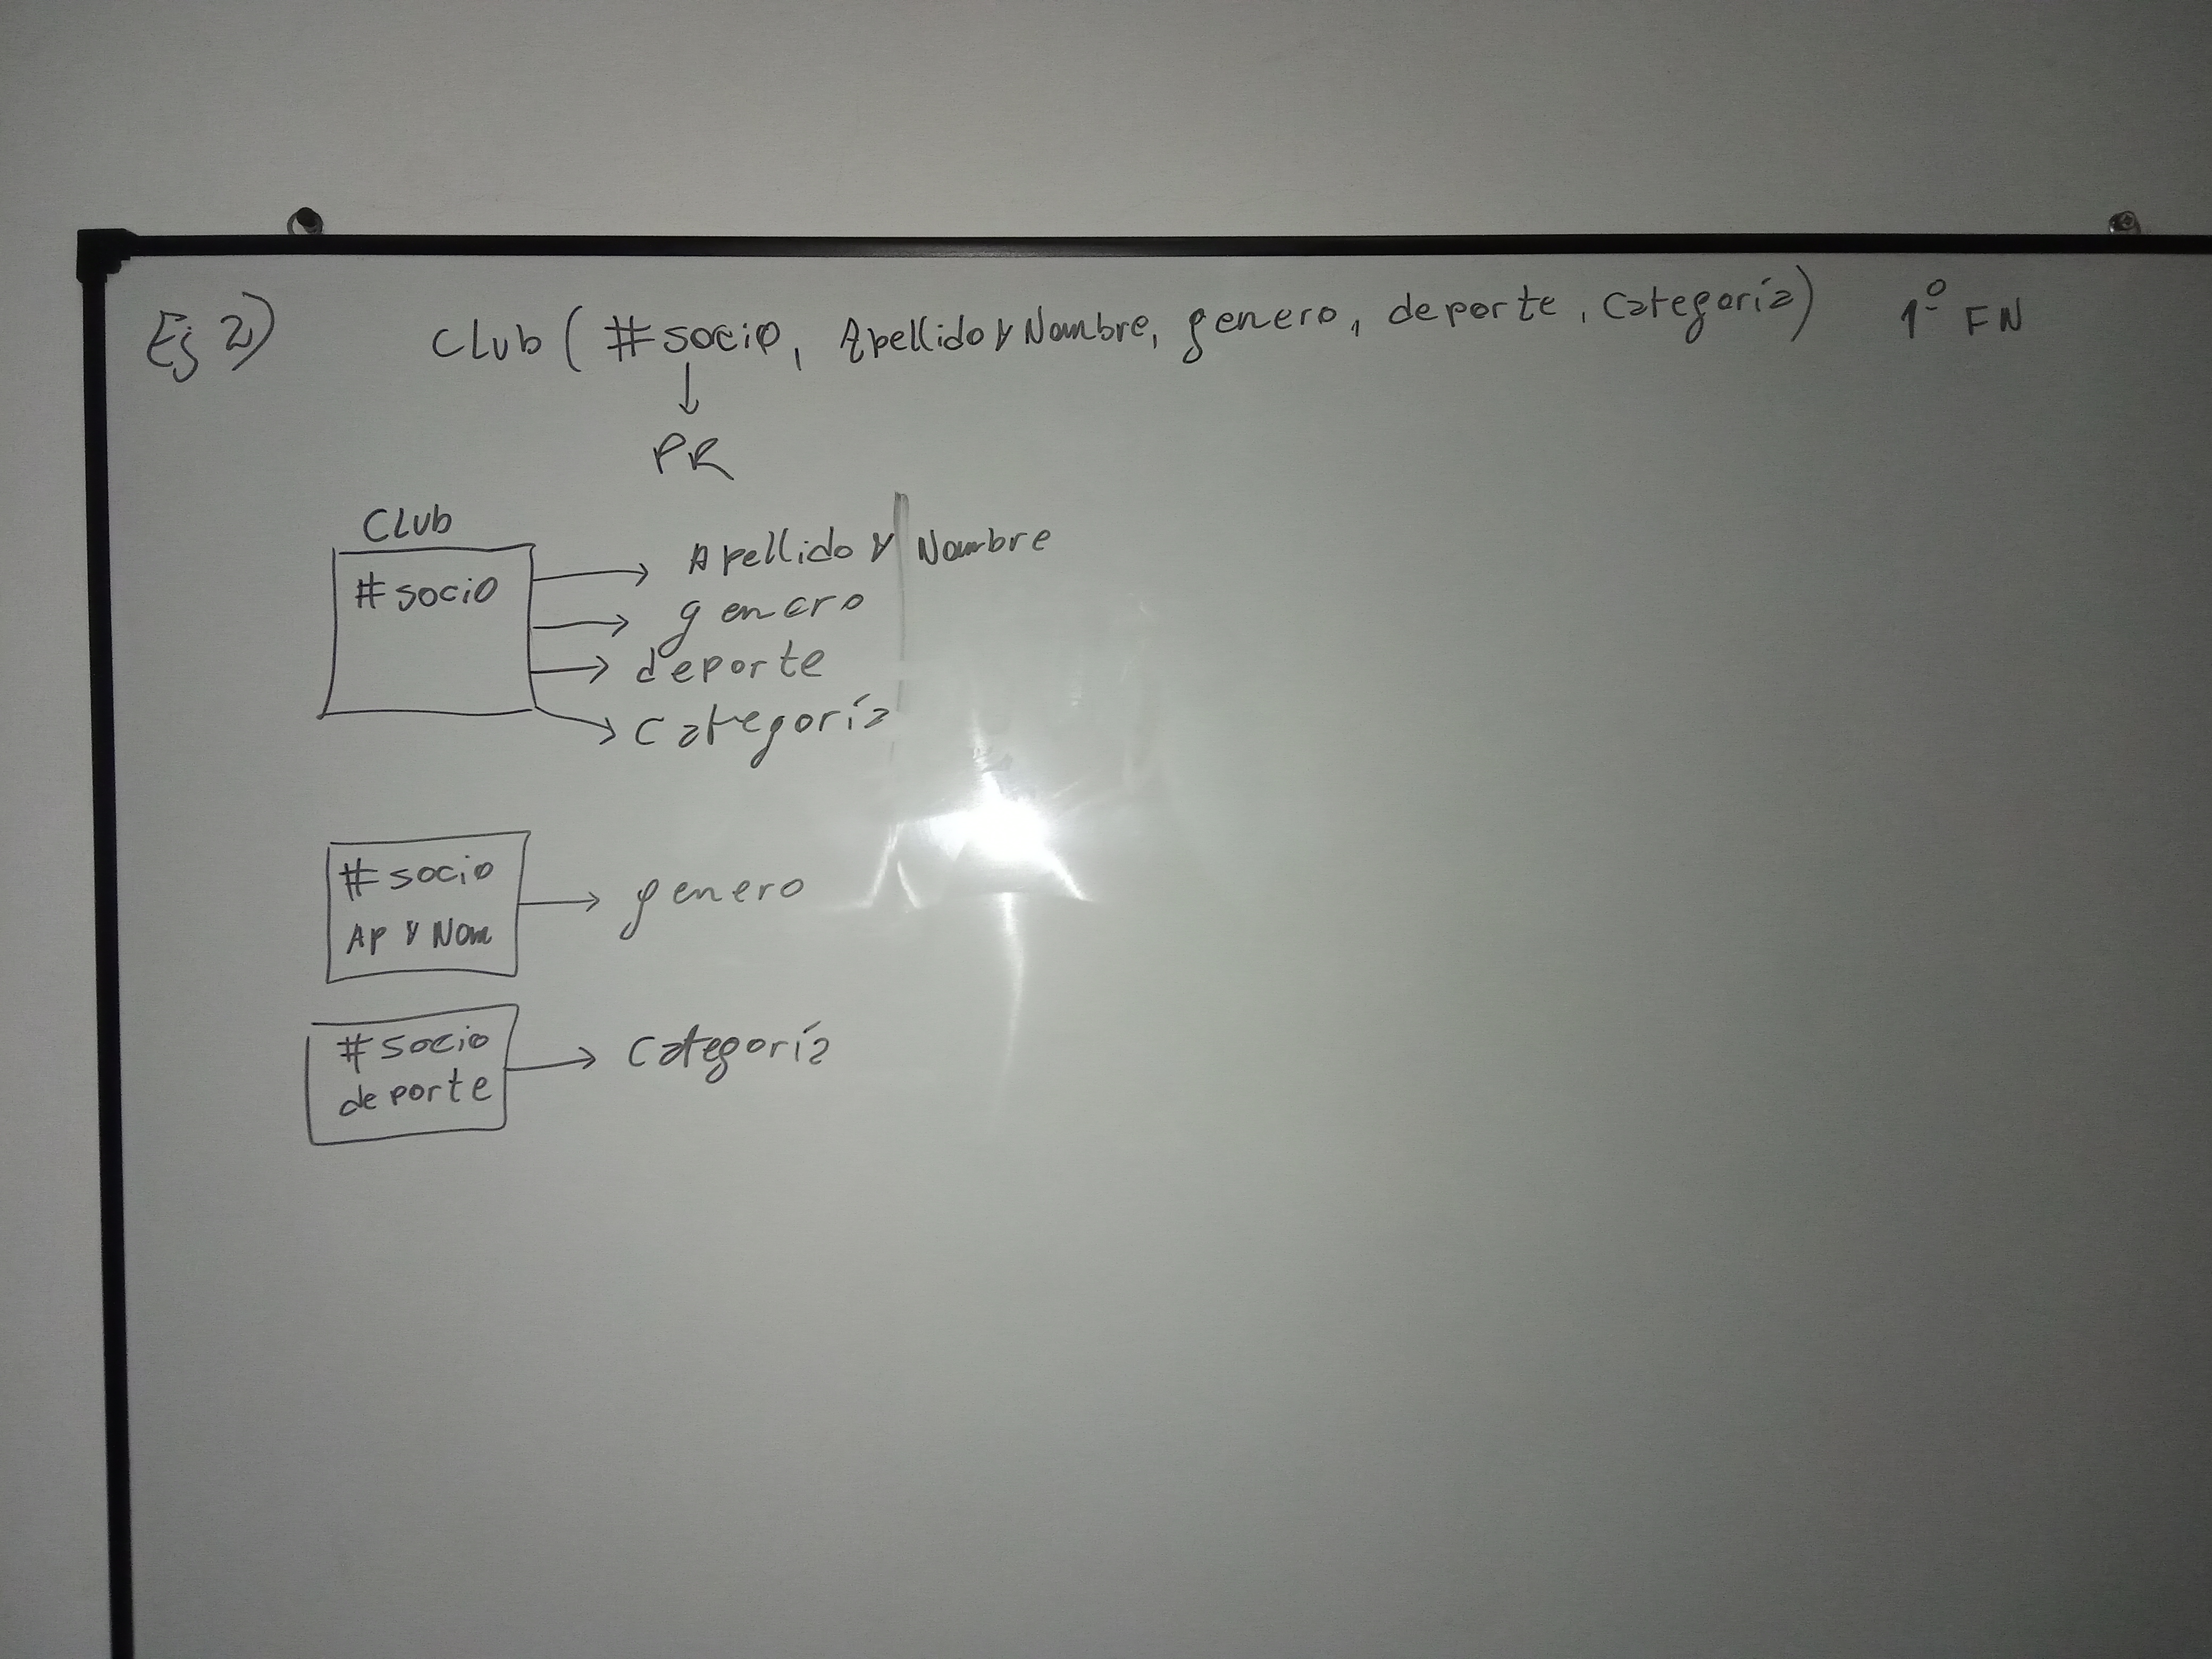 Ej 2) Club ( #socio, Apellido y Nombre, genero, deporte, Categoría) 1º FN
PR
Club
#socio
Apellido y Nombre
genero
deporte
Categoría
#socio
Ap y Nom
genero
#socio
deporte
Categoría